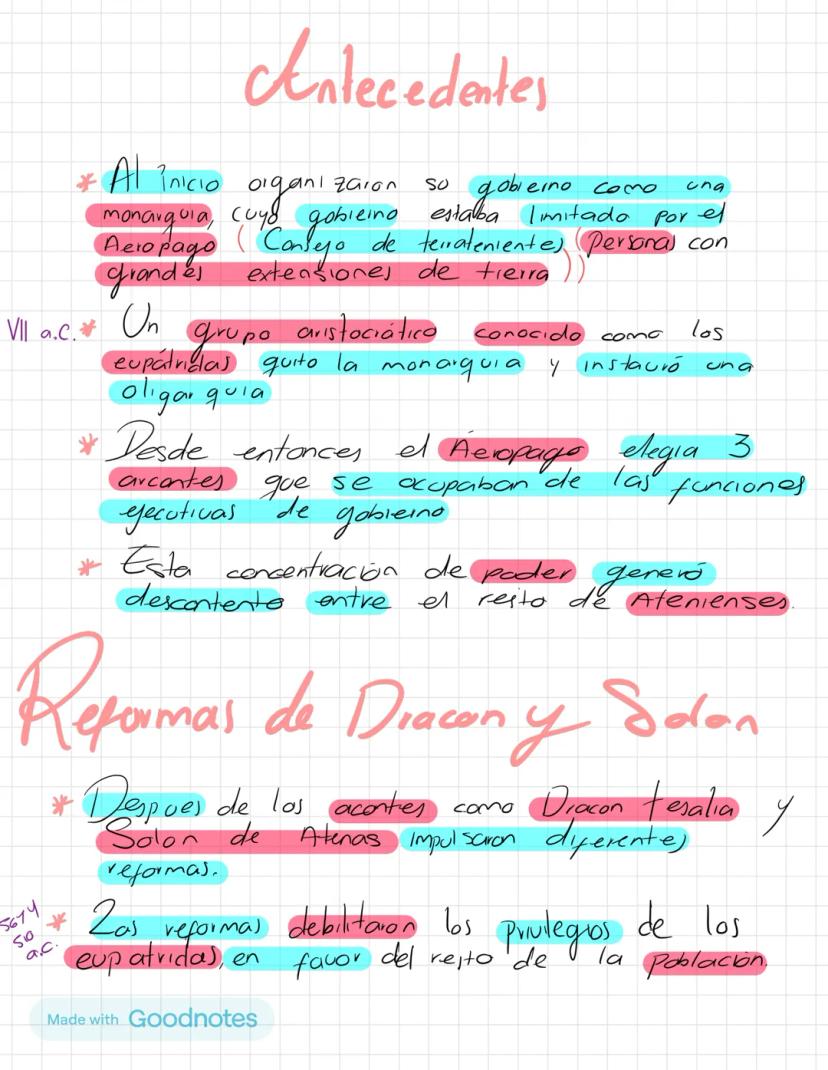 Antecedentes
* Al inicio organizaron so gobierno como una
monarquia, cuyo gobierno estaba limitado por el
Aeropago (Consejo de terratenientes) (Personas con
grandes extensiones de tierra))
VII a.C. * Un grupo aristocrático conocido como los
eupátridas quito la monarquia y instauró una
oligarquia
* Desde entonces el Aeropago elegia 3
arcontes que se ocupaban de las funciones
ejecutivas de gobierno
* Esta concentración de poder generó
descontento entre el resto de Atenienses.
Reformas de Dracon y Solon
* Despues de los acontes como Dracon tesalia y
Solon de Atenas impulsaron diferentes
reformas.
* Las reformas debilitaron los privilegios de los
a.C.
eupatridas, en favor del resto de la población.
Made with Goodnotes